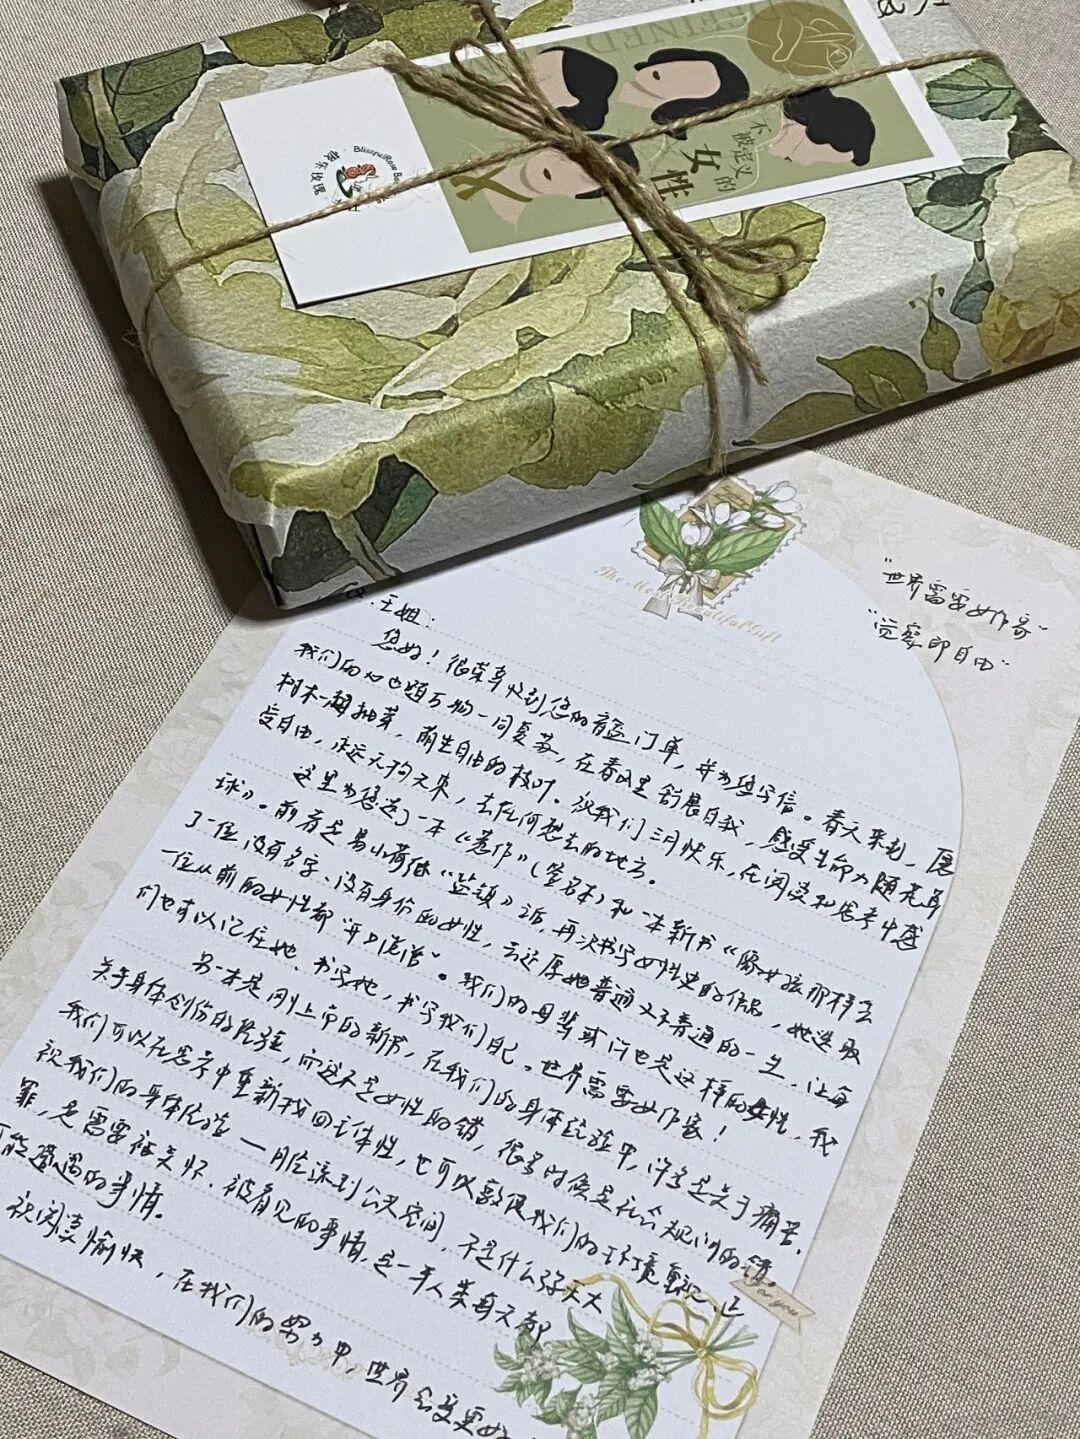 DEFINED
不被定义的
女性
BlissfulRose
极乐玫瑰
The Most Beautiful Gift
"世界需要女作家"
"觉察即自由"
王姐：
您好！很荣幸收到您的盲盒订单，并为您写信。春天来到，愿
我们的心也随万物一同复苏，在春风里舒展自我，感受生命力随花草
树木一起抽芽，萌生自由的枝叶。祝我们三月快乐，在阅读和思考中感
受自由，永远天狗天来，去任何想去的地方。
这里为您选了一本《着作》(签名本)和一本新书《
球》。前者是易小荷继《盐镇》后，再次书写女性史的作品，她选取
了一位没有名字、没有身份的女性，去还原她普通又不普通的一生，让每
一位从前的女性都"开口说话"。我们的母辈或许也是这样的女性，我
们也可以记住她、书写她，书写我们自己。世界需要女作家！
另一本是刚上市的新书，在我们的身体经验中，许多是关于痛苦、
关于身体创伤的经验，而这不是女性的错，很多时候是社会规训的错。
我们可以在思考中重新找回主体性，也可以敦促我们的环境重视、正
视我们的身体体验——月经流到公众空间，不是什么弥天大
罪，是需要被关怀、被看见的事情，这一半人类每天都
可能遭遇的事情。
祝阅读愉快，在我们的努力中，世界会变更好
For you